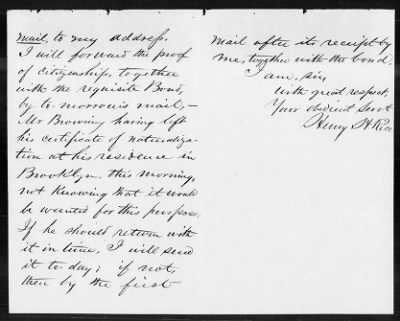 mail, to my address.
I will forward the proof
of citizenship, together
with the requisite Bond,
by to morrow's mail, —
Mr Browning having left
his certificate of naturaliza-
tion at his residence in
Brooklyn this morning,
not knowing that it would
be wanted for this purpose.
If he should return with
it in time, I will send
it to-day; if not,
then by the first
mail after its receipt by
me, together with the bond.
I am, sir,
with great respect,
Your obedient Servt
Henry H Rice